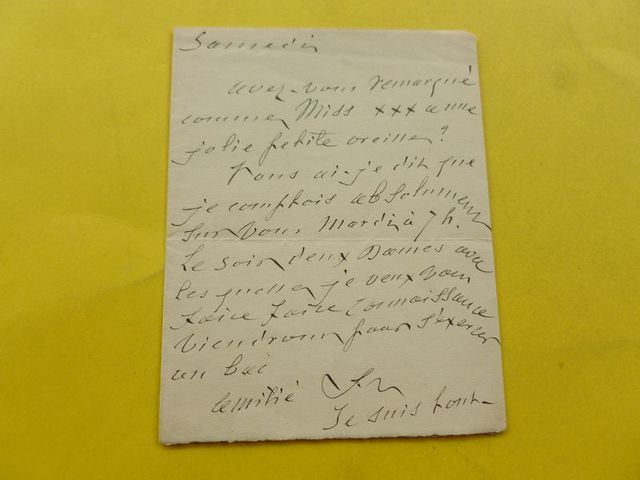 Samedi
avez-vous remarqué
comme Miss xxx a une
jolie petite oreille?
Vous ai-je dit que
je comptois absolument
sur vous Mardi à 7 h.
Le soir deux Dames avec
lesquelles je veux vous
faire faire connaissance
viendront pour s'exercer
au bac
amitié
Je suis tout-